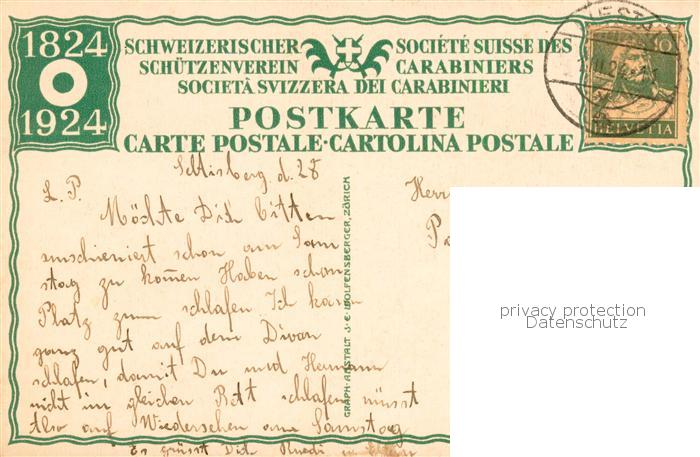 1824
1924
SCHWEIZERISCHER
SCHÜTZENVEREIN
SOCIÉTÉ SUISSE DES
CARABINIERS
SOCIETÀ SVIZZERA DEI CARABINIERI
POSTKARTE
CARTE POSTALE·CARTOLINA POSTALE
10
HELVETIA
d. 28
L. P.
Möchte Dich bitten
schon am Sam
stag zu kom̄en Haben schon
Platz zum schlafen Ich kann
ganz gut auf dem Divan
schlafen, damit Du und Hermann
nicht im gleichen Bett schlafen müsst
Also auf Wiedersehen am Samstag
Es grüsst Dich Ruedi
Herr
GRAPH·ANSTALT J·E·WOLFENSBERGER, ZÜRICH
privacy protection
Datenschutz